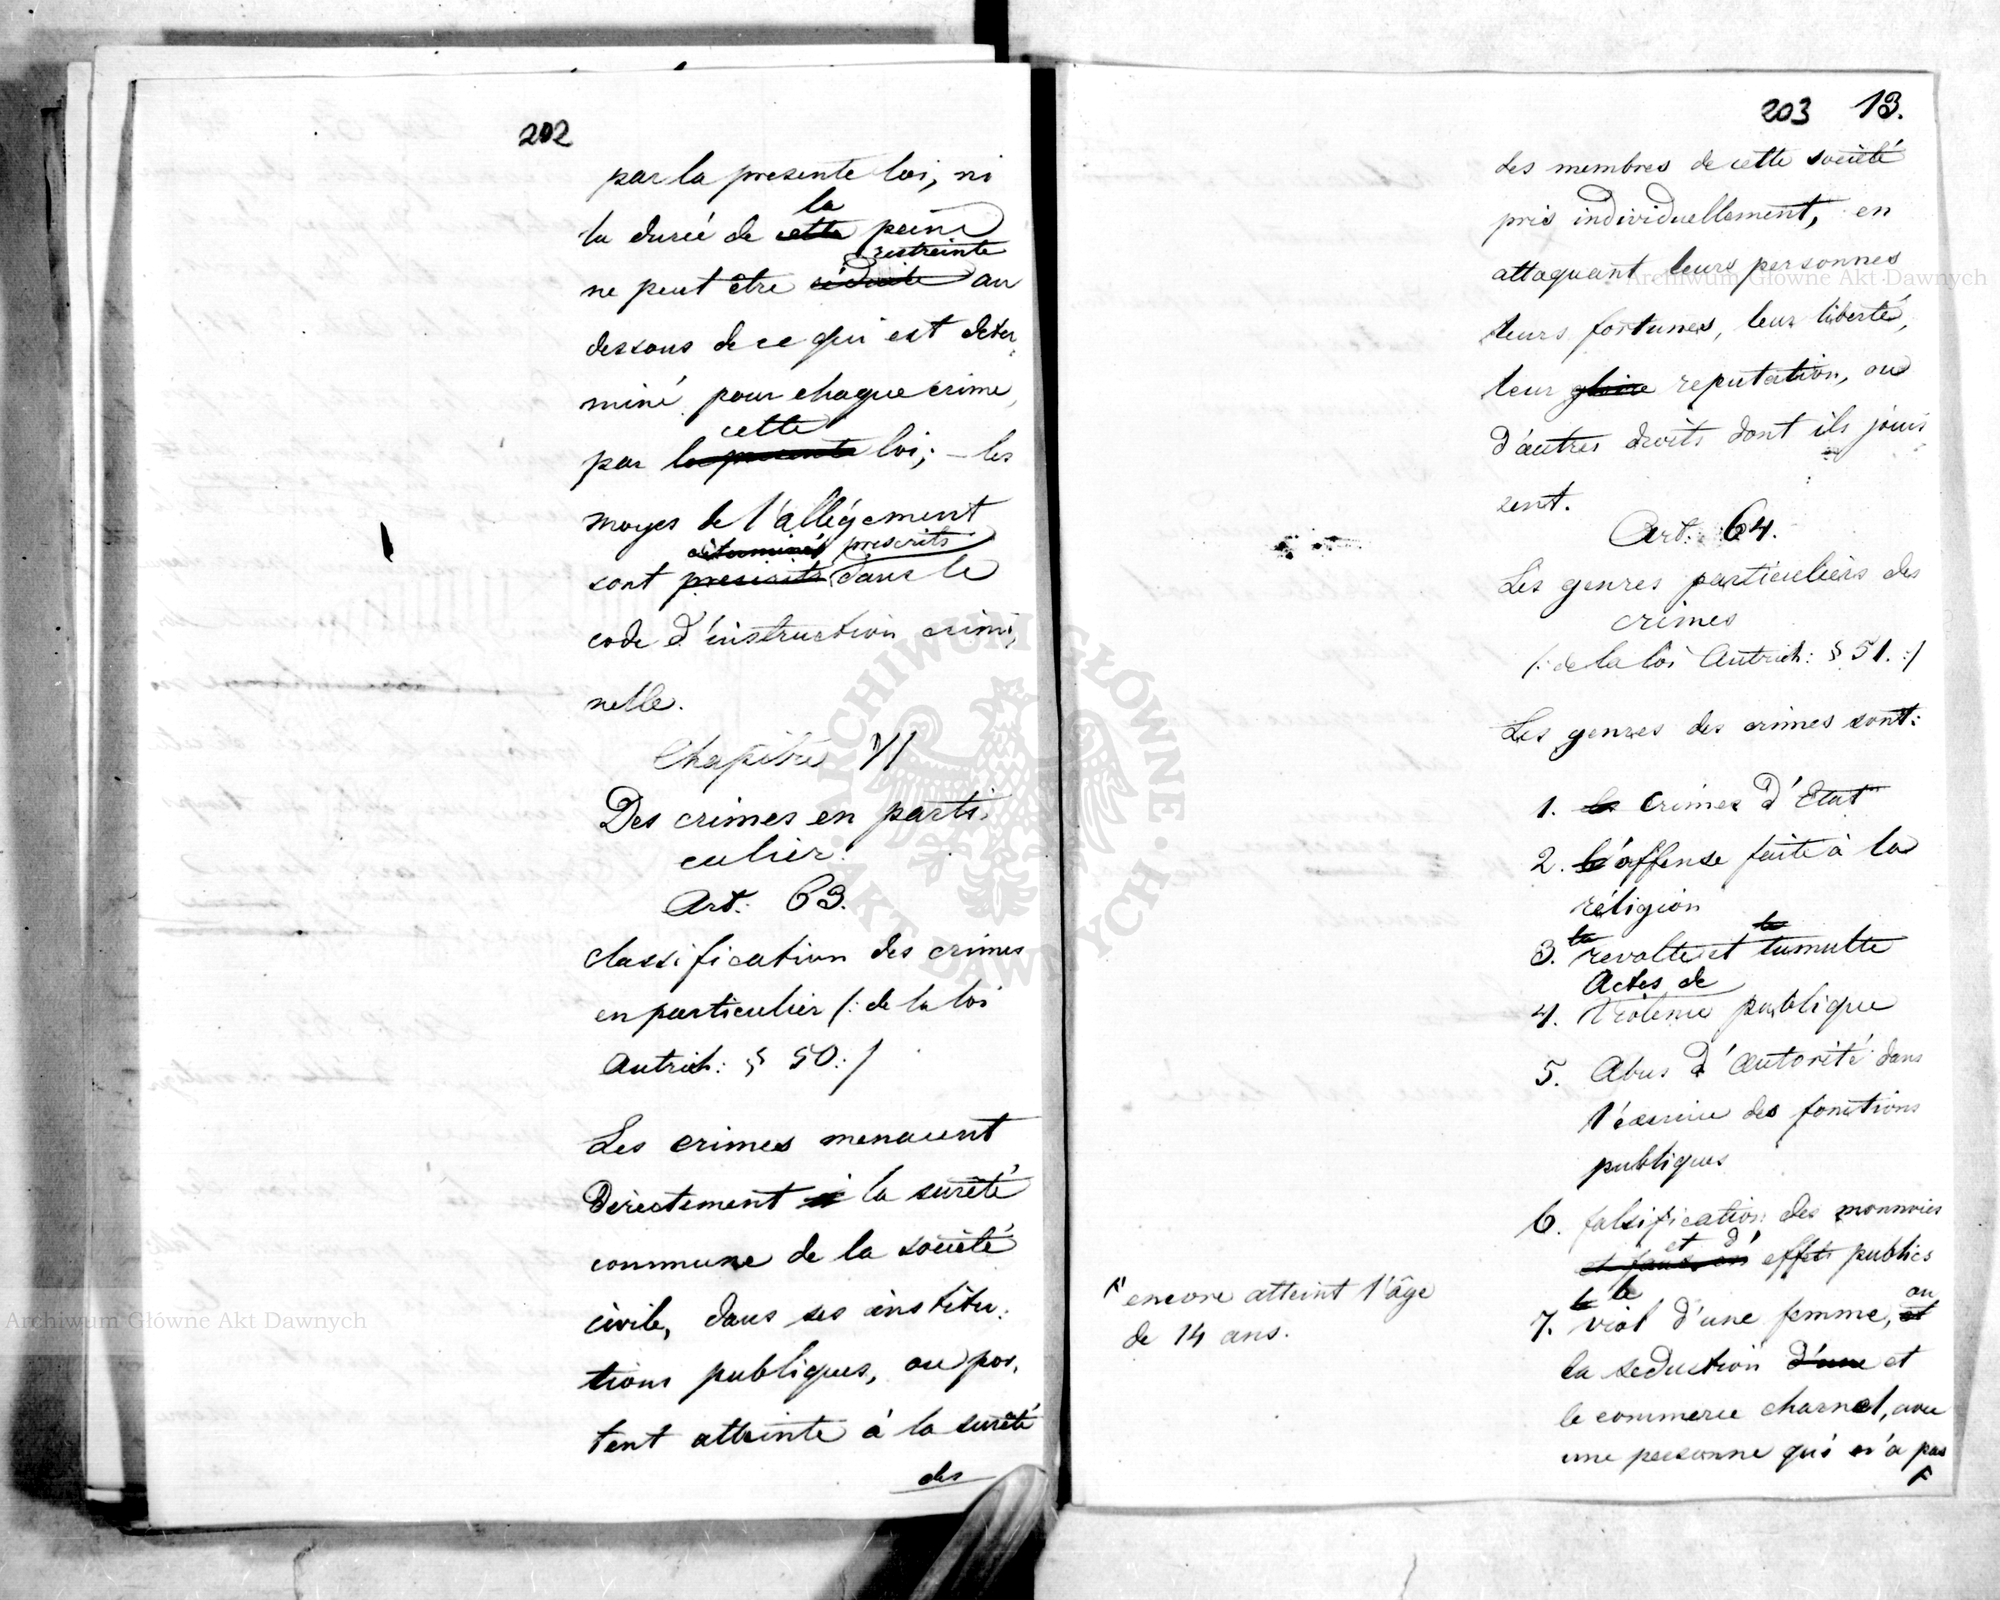 202
par la presente loi, ni
la
la dureé de cette peine
restreinte
ne peut être réduite au
dessous de ce qui est deter,
miné pour chaque crime,
cette
par la presente loi; – les
moyes de l'allégement
determinés prescrits
sont prescrits dans le
code d'instruction crimi,
nelle.
Chapitre VI
Des crimes en parti,
culier.
Art: 63.
classification des crimes
en particulier /: de la loi
Autrich: § 50:/
Les crimes menacent
directement à la sureté
commune de la societé
civile, dans ses institu,
tions publiques, ou por,
tent atteinte à la sureté
des
203 13.
des membres de cette societé
pris individuellement, en
attaquant leurs personnes
leurs fortunes, leur liberté,
leur gloire reputation, ou
d'autres droits dont ils jouis
sent.
Art: 64.
Les genres particuliers des
crimes
/: de la loi Autrich: § 51.:/
Les genres des crimes sont:
1. les crimes d'Etat
2. l'offense faite à la
réligion
la le
3. revolte et tumulte
Actes de
4. Violence publique
5. Abus d'autorité dans
l'exercice des fonctions
publiques
6. falsification des monnoies
et d'
et faux en effets publics
le le ou
7. viol d'une femme, et
la seduction d'une et
le commerce charnel, avec
une personne qui n'a pas
F
F encore atteint l'âge
de 14 ans.
Archiwum Główne Akt Dawnych
Archiwum Główne Akt Dawnych
ARCHIWUM GŁÓWNE · AKT DAWNYCH ·